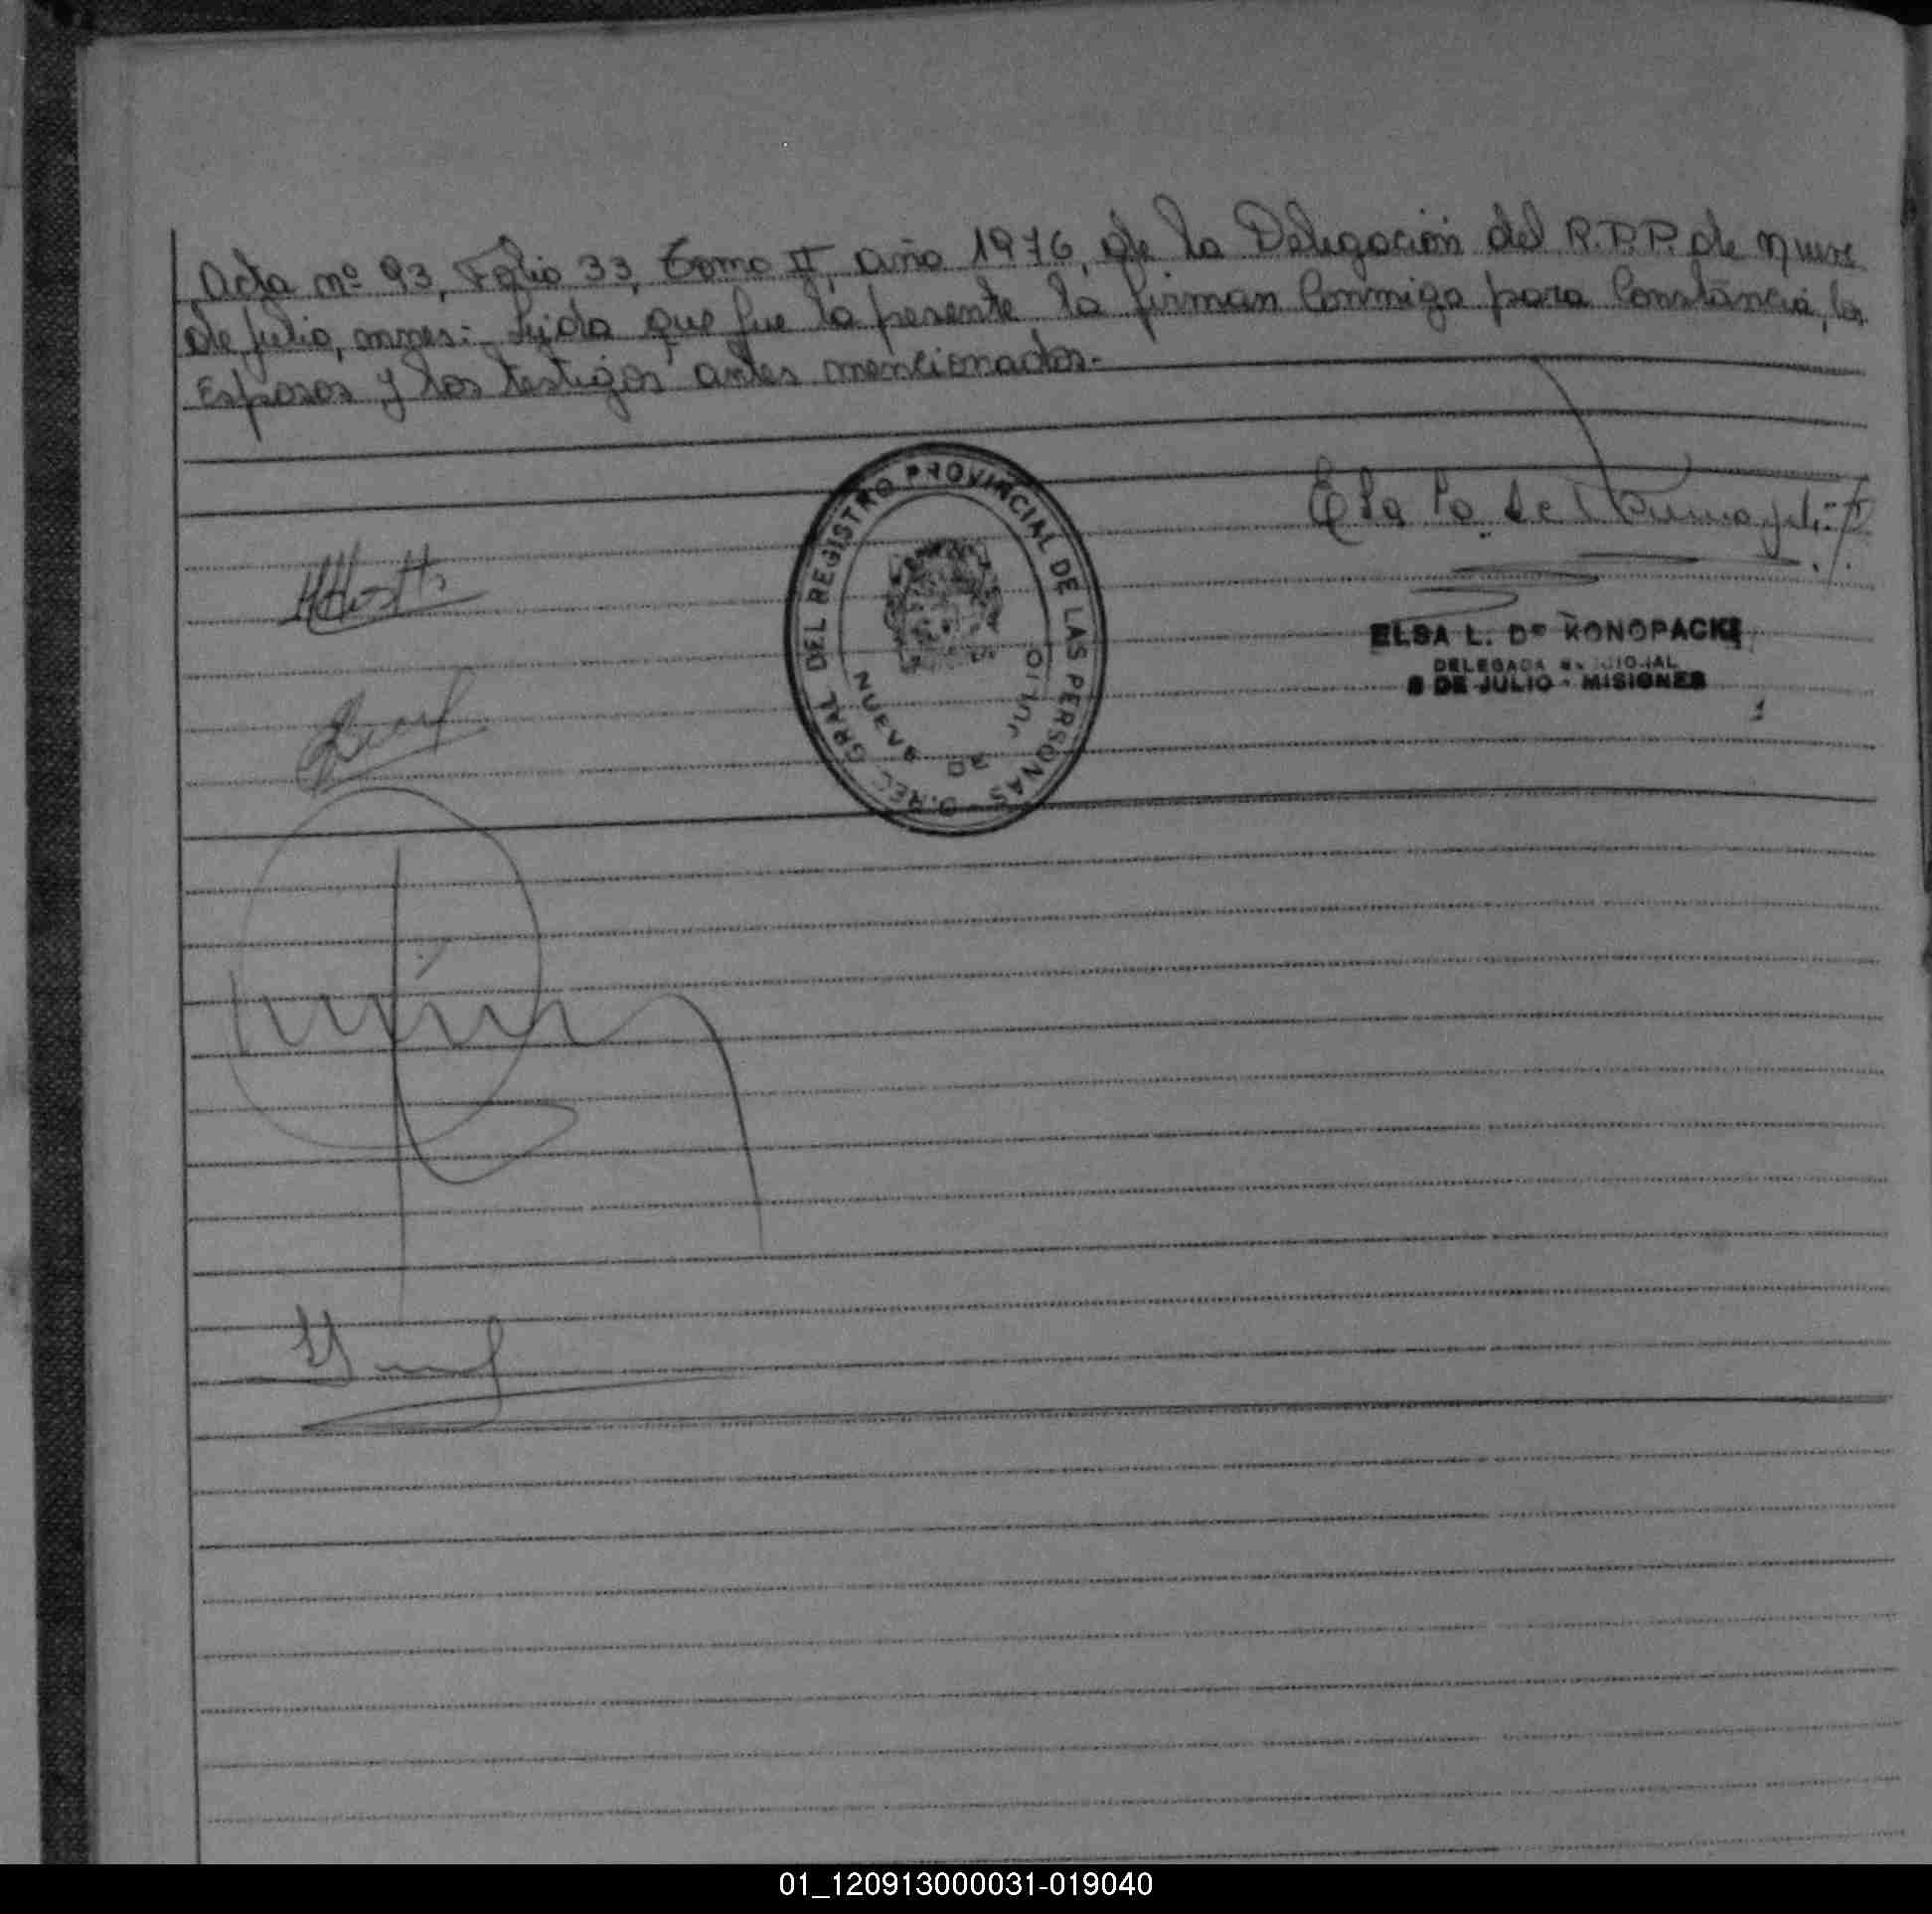 Acta nº 93, Folio 33, Tomo II, año 1976, de la Delegación del R.P.P. de Nueve
de Julio, mnes:- Leída que fue la presente la firman Conmigo para Constancia, los
Esposos y los testigos antes mencionados.-
DIREC. GRAL. DEL REGISTRO PROVINCIAL DE LAS PERSONAS
NUEVE DE JULIO
ELSA L. De KONOPACKI
DELEGADA
9 DE JULIO - MISIONES
01_120913000031-019040